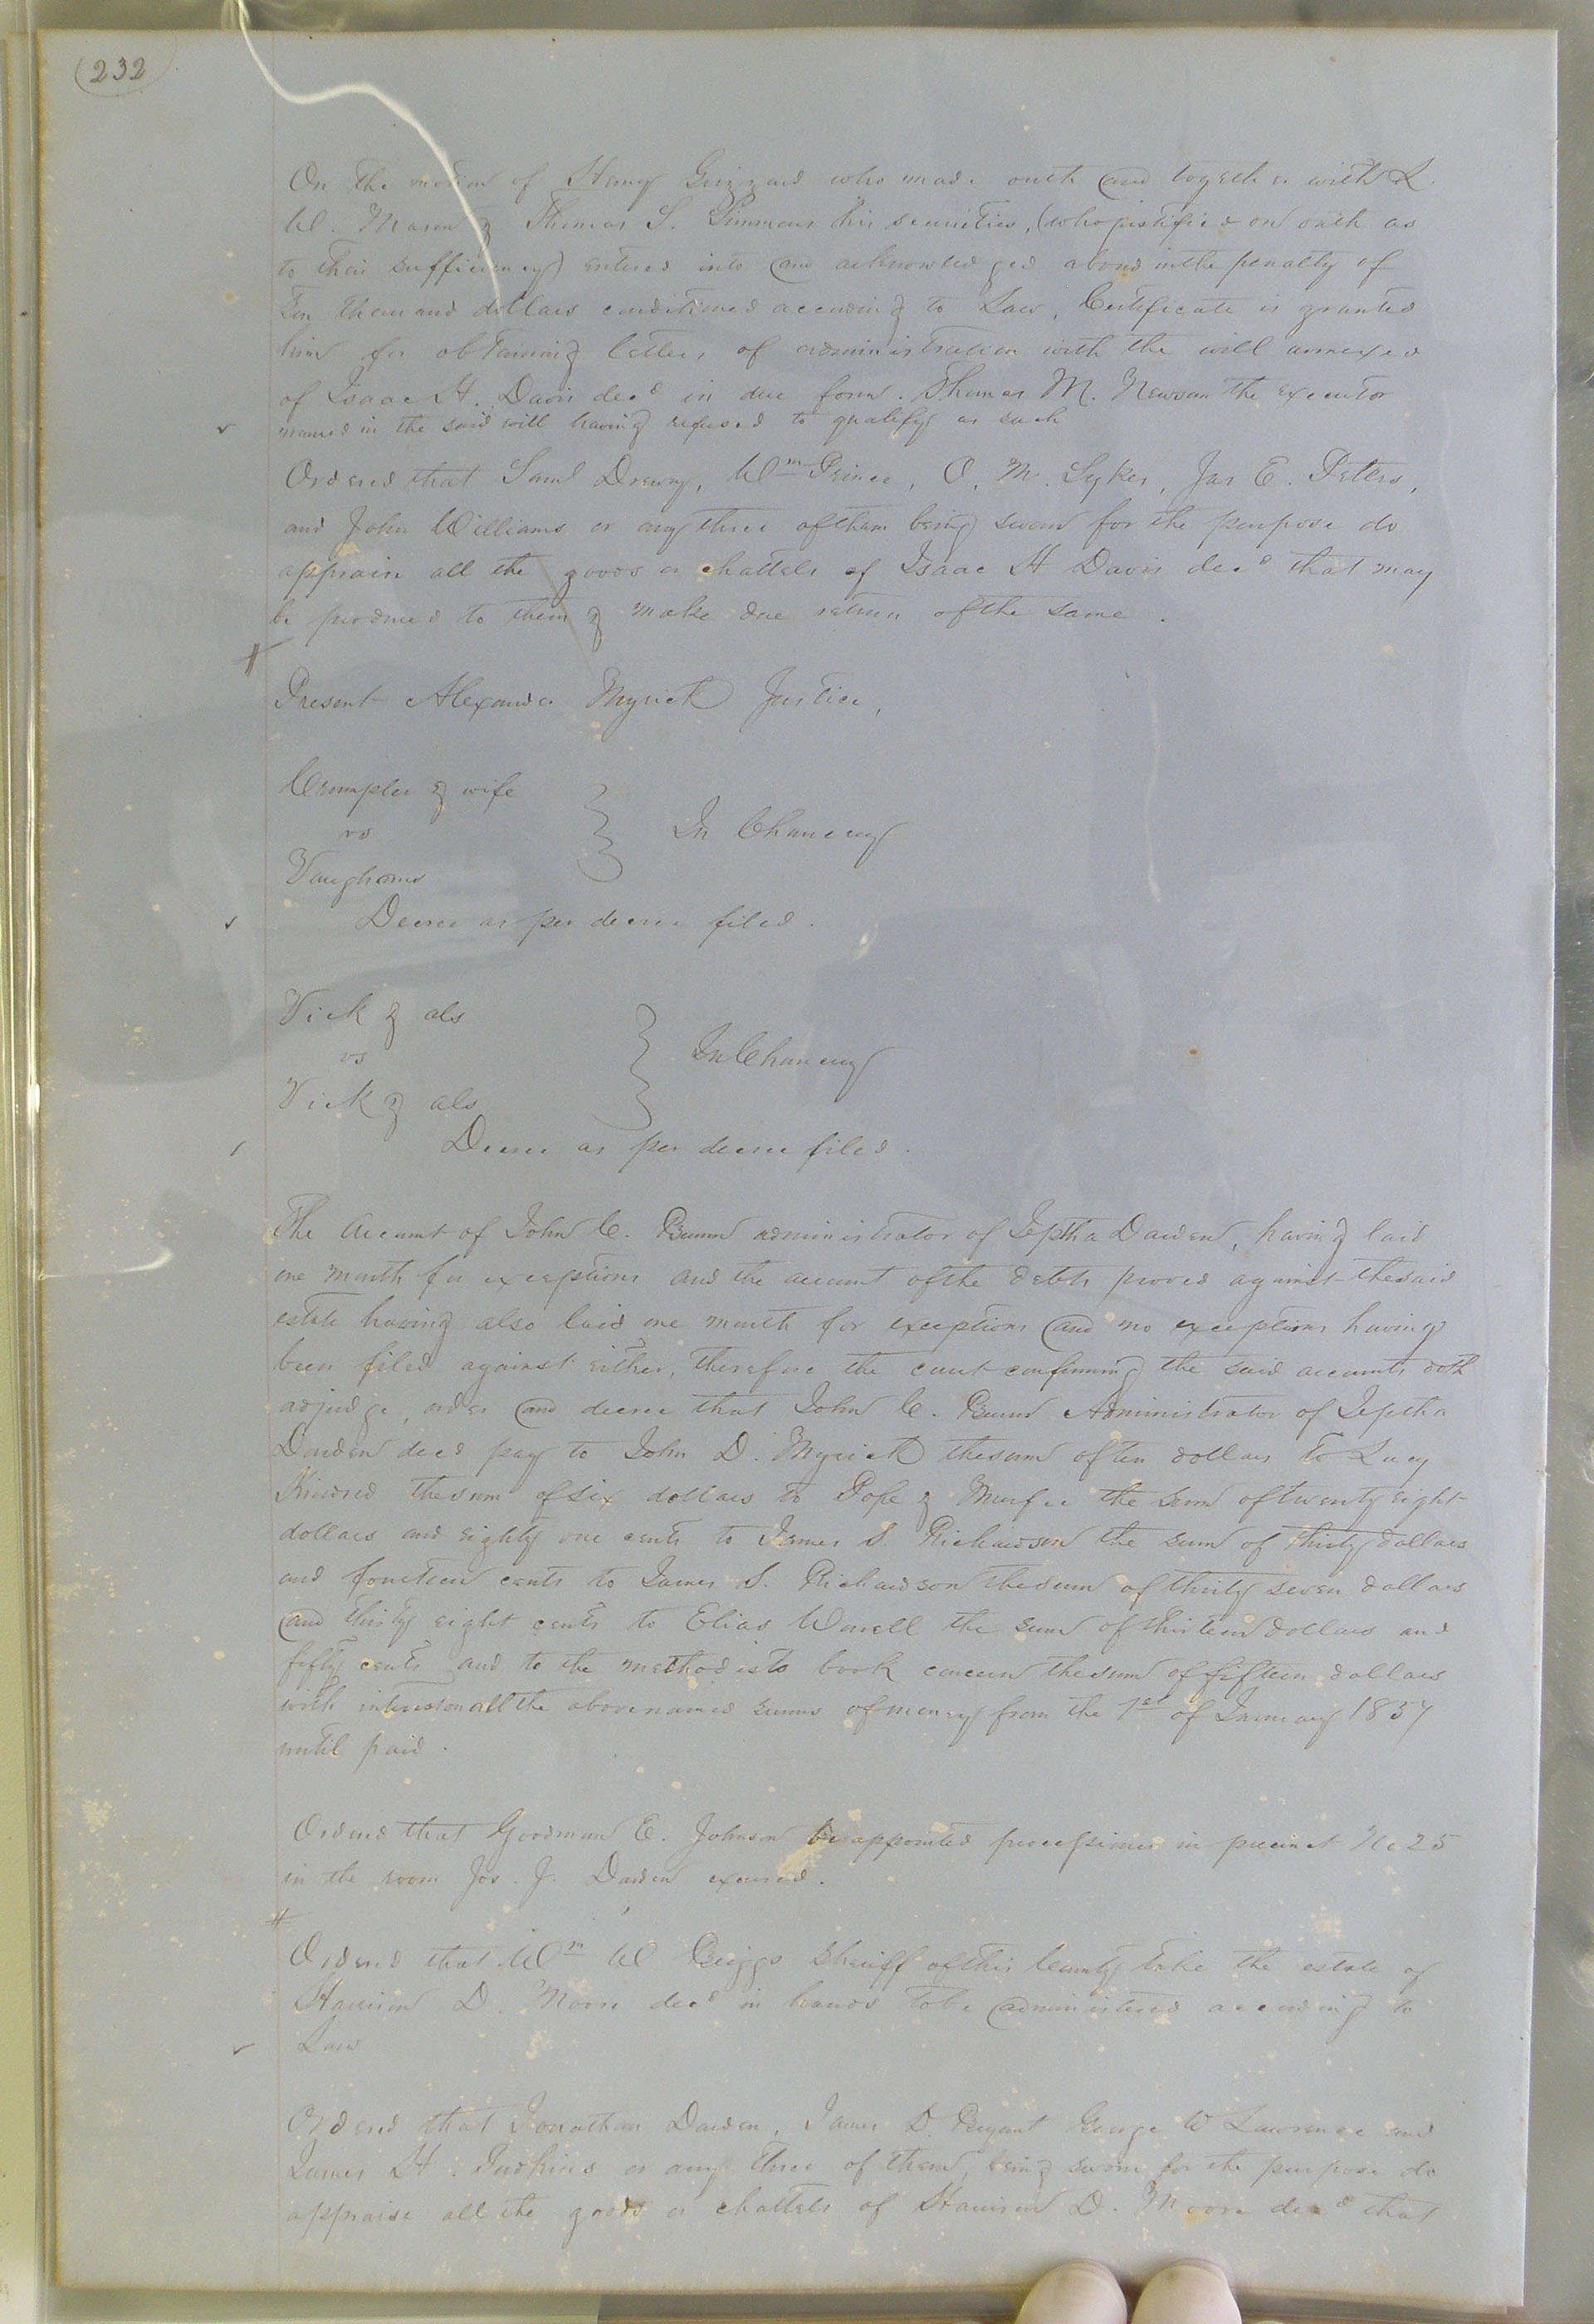 232
On the motion of Henry Grizzard who made oath and together with L.
W. Mason & Thomas S. Simmons his securities, (who justified on oath as
to their sufficiency) entered into and acknowledged a bond in the penalty of
Ten thousand dollars conditioned according to Law, Certificate is granted
him for obtaining letters of administration with the will annexed
of Isaac H. Davis decd in due form. Thomas M. Newsom the executor
named in the said will having refused to qualify as such
Ordered that Saml Drewry, Wm Prince, O. M. Sykes, Jas E. Peters,
and John Williams or any three of them being sworn for the purpose do
appraise all the goods or chattels of Isaac H Davis decd that may
be produced to them & make due return of the same.
Present Alexander Myrick Justice,
Crumpler & wife
vs
In Chancery
Vaughans
Decree as per decree filed.
Vick & als
vs
In Chancery
Vick & als
Decree as per decree filed.
The Account of John C. Bunn administrator of Jeptha Darden, having laid
one month for exceptions and the account of the debts proved against the said
estate having also laid one month for exceptions and no exceptions having
been filed against either, therefore the court confirming the said accounts doth
adjudge, order and decree that John C. Bunn Administrator of Jeptha
Darden decd pay to John D. Myrick the sum of ten dollars to Lucy
Kindred the sum of six dollars to Pope & Murfee the sum of twenty eight
dollars and eighty one cents to James S. Richardson the sum of thirty dollars
and fourteen cents to James S. Richardson the sum of thirty seven dollars
and thirty eight cents to Elias Worrell the sum of thirteen dollars and
fifty cents and to the methodists book concern the sum of fifteen dollars
with interest on all the above named sums of money from the 1st of January 1857
until paid.
Ordered that Goodman E. Johnson be appointed processioner in precinct No 25
in the room Jos. J. Darden excused.
Ordered that Wm W Briggs Sheriff of this County take the estate of
Harrison D. Moore decd in hands to be administered according to
Law
Ordered that Jonathan Darden, James D. Bryant George W Lawrence and
James H. Judkins or any three of them, being sworn for the purpose do
appraise all the goods or chattels of Harrison D. Moore decd that